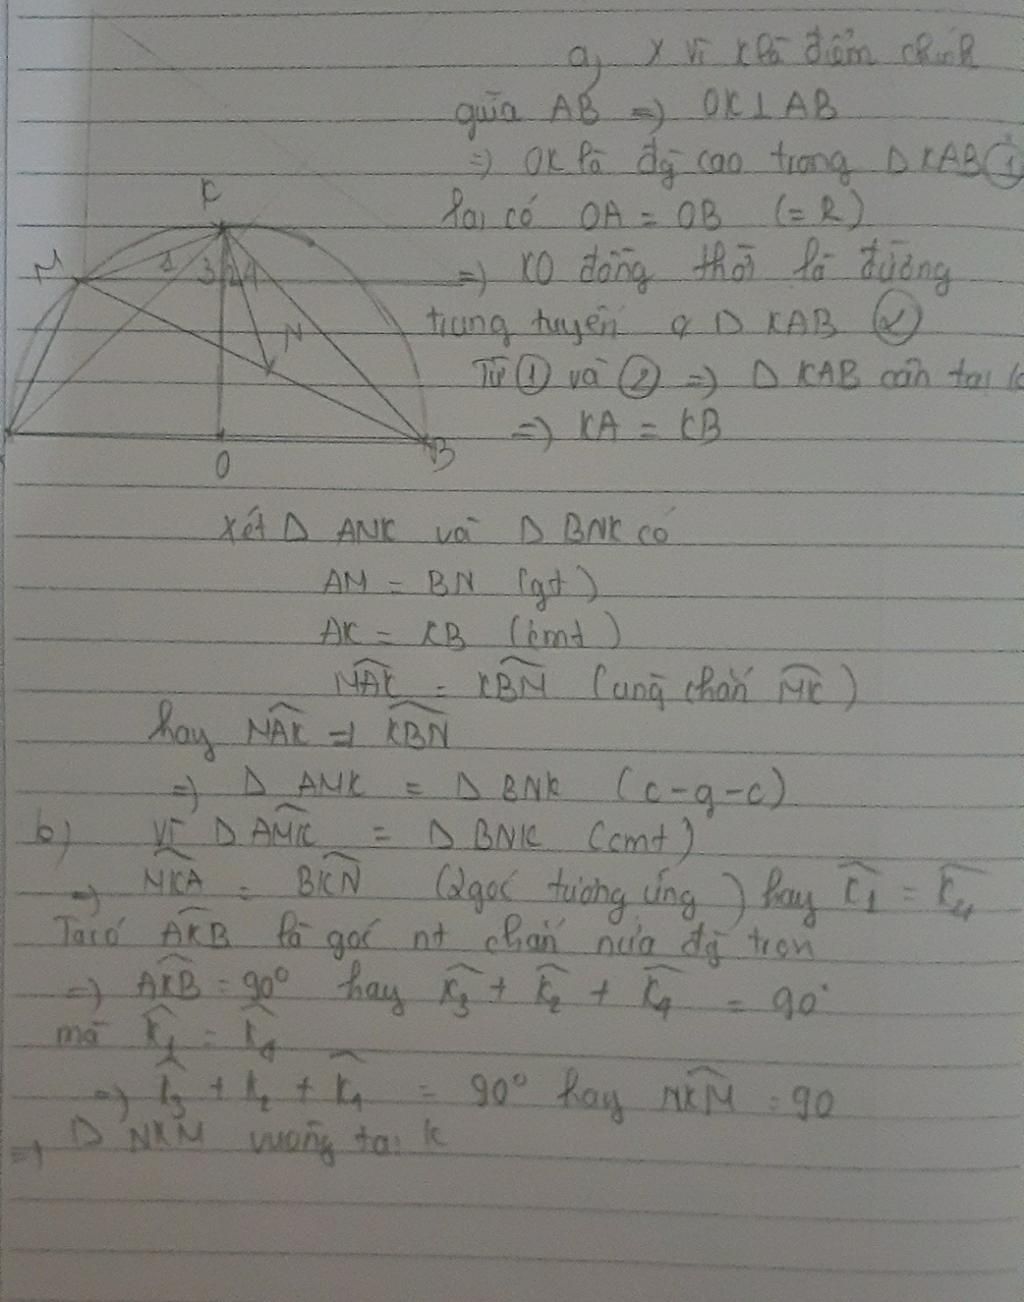 a, X vì K là điểm chính
giữa AB => OK⊥AB
=> OK là đg cao trong Δ KAB ①
lại có OA = OB (= R)
=> KO đồng thời là đường
trung tuyến Δ KAB ②
Từ ① và ② => Δ KAB cân tại K
=> KA = KB
K
M
1 3 2 4
N
O
B
Xét Δ ANK và Δ BNK có
AM = BN (gt)
AK = KB (cmt)
MAK = KBM (cùng chắn MK)
hay MAK = KBN
=> Δ AMK = Δ BNK (c-g-c)
b) Vì Δ AMK = Δ BNK (cmt)
=> MKA = BKN (2 góc tương ứng) hay K1 = K4
Ta có AKB là góc nt chắn nửa đg tròn
=> AKB = 90° hay K3 + K2 + K4 = 90°
mà K1 = K4
=> K3 + K2 + K1 = 90° hay NKM = 90
=> Δ NKM vuông tại K